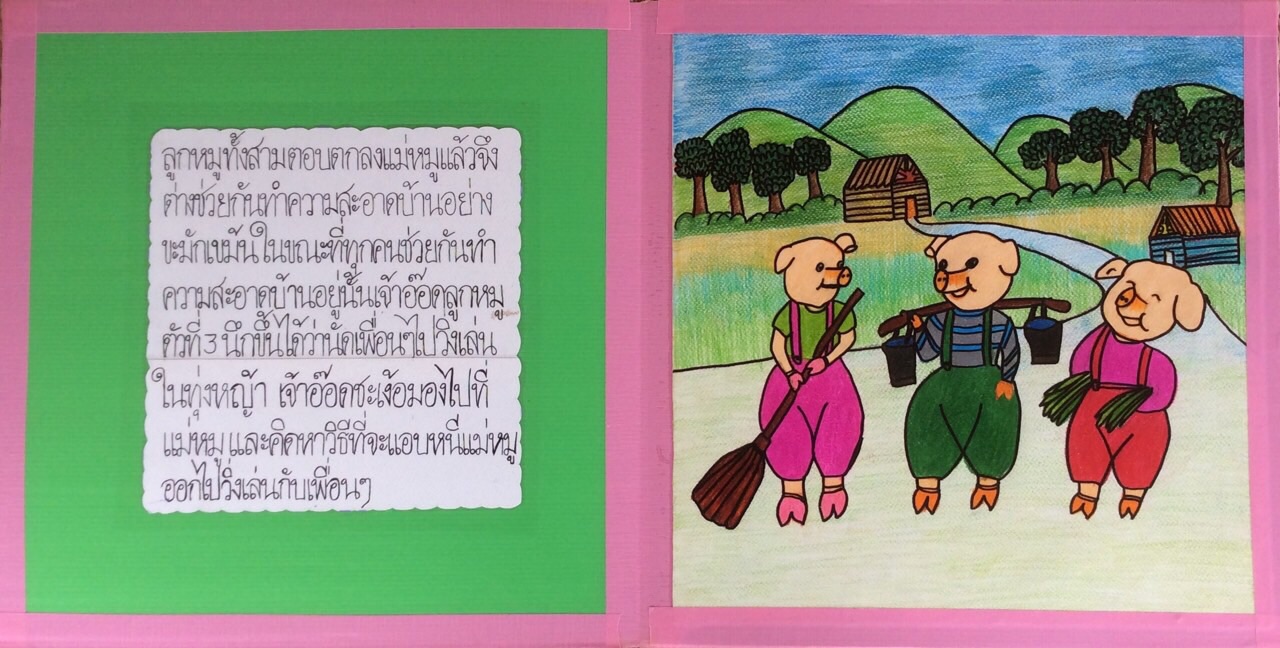 ลูกหมูทั้งสามตอบตกลงแม่หมูแล้วจึง
ต่างช่วยกันทำความสะอาดบ้านอย่าง
ขะมักเขม้น ในขณะที่ทุกคนช่วยกันทำ
ความสะอาดบ้านอยู่นั้นเจ้าอ๊อดลูกหมู
ตัวที่ 3 นึกขึ้นได้ว่านัดเพื่อนๆไปวิ่งเล่น
ในทุ่งหญ้า เจ้าอ๊อดชะเง้อมองไปที่
แม่หมู และคิดหาวิธีที่จะแอบหนีแม่หมู
ออกไปวิ่งเล่นกับเพื่อนๆ